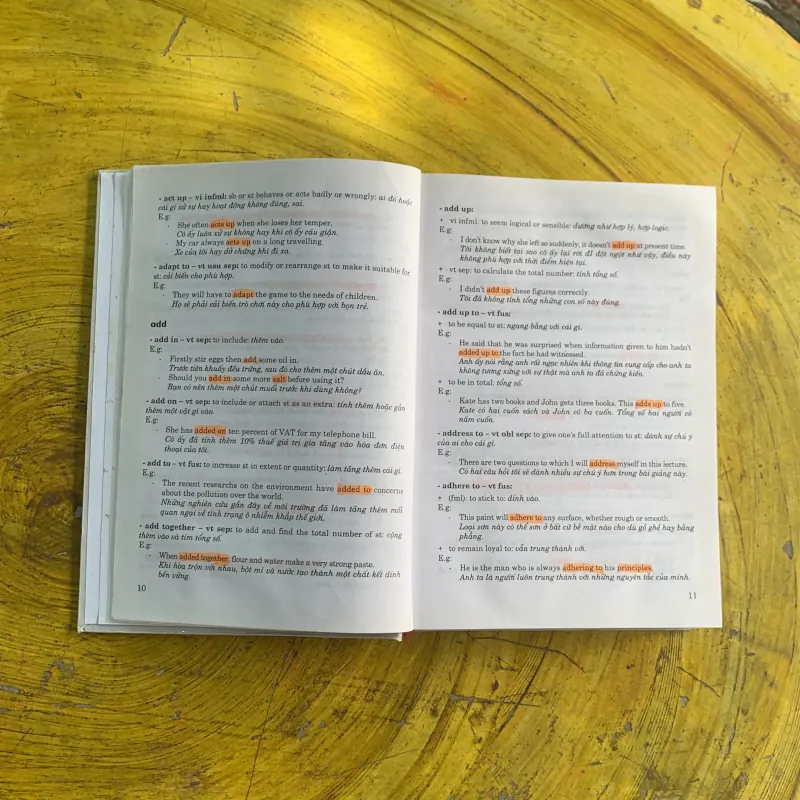 - act up – vi infml: sb or st behaves or acts badly or wrongly: ai đó hoặc
cái gì xử sự hay hoạt động không đúng, sai.
E.g:
- She often acts up when she loses her temper.
Cô ấy luôn xử sự không hay khi cô ấy cáu giận.
- My car always acts up on a long travelling.
Xe của tôi hay dở chứng khi đi xa.
- adapt to – vt usu sep: to modify or rearrange st to make it suitable for
st: cải biến cho phù hợp.
E.g:
- They will have to adapt the game to the needs of children.
Họ sẽ phải cải biến trò chơi này cho phù hợp với bọn trẻ.
add
- add in – vt sep: to include: thêm vào.
E.g:
- Firstly stir eggs then add some oil in.
Trước tiên khuấy đều trứng, sau đó cho thêm một chút dầu ăn.
- Should you add in some more salt before using it?
Bạn có nên thêm một chút muối trước khi dùng không?
- add on – vt sep: to include or attach st as an extra: tính thêm hoặc gắn
thêm một vật gì vào.
E.g:
- She has added on ten percent of VAT for my telephone bill.
Cô ấy đã tính thêm 10% thuế giá trị gia tăng vào hóa đơn điện
thoại của tôi.
- add to – vt fus: to increase st in extent or quantity: làm tăng thêm cái gì.
E.g:
- The recent researchs on the environment have added to concerns
about the pollution over the world.
Những nghiên cứu gần đây về môi trường đã làm tăng thêm mối
quan ngại về tình trạng ô nhiễm khắp thế giới.
- add together – vt sep: to add and find the total number of st: cộng
thêm vào và tìm tổng số.
E.g:
- When added together, flour and water make a very strong paste.
Khi hòa trộn với nhau, bột mì và nước tạo thành một chất kết dính
bền vững.
10
- add up:
+ vi infml: to seem logical or sensible: dường như hợp lý, hợp logic.
E.g:
- I don't know why she left so suddenly, it doesn't add up at present time.
Tôi không biết tại sao cô ấy lại rời đi đột ngột như vậy, điều này
không phù hợp với thời điểm hiện tại.
+ vt sep: to calculate the total number: tính tổng số.
E.g:
- I didn't add up these figures correctly.
Tôi đã không tính tổng những con số này đúng.
- add up to – vt fus:
+ to be equal to st: ngang bằng với cái gì.
E.g:
- He said that he was surprised when information given to him hadn't
added up to the fact he had witnessed.
Anh ấy nói rằng anh rất ngạc nhiên khi thông tin cung cấp cho anh ta
không tương xứng với sự thật mà anh ta đã chứng kiến.
+ to be in total: tổng số.
E.g:
- Kate has two books and John gets three books. This adds up to five.
Kate có hai cuốn sách và John có ba cuốn. Tổng số hai người có
năm cuốn.
- address to – vt obl sep: to give one's full attention to st: dành sự chú ý
của ai cho cái gì.
E.g:
- There are two questions to which I will address myself in this lecture.
Có hai câu hỏi tôi sẽ dành nhiều sự chú ý hơn trong bài giảng này.
- adhere to – vt fus:
+ (fml): to stick to: dính vào.
E.g:
- This paint will adhere to any surface, whether rough or smooth.
Loại sơn này có thể sơn ở bất cứ bề mặt nào cho dù gồ ghề hay bằng
phẳng.
+ to remain loyal to: vẫn trung thành với.
E.g:
- He is the man who is always adhering to his principles.
Anh ta là người luôn trung thành với những nguyên tắc của mình.
11